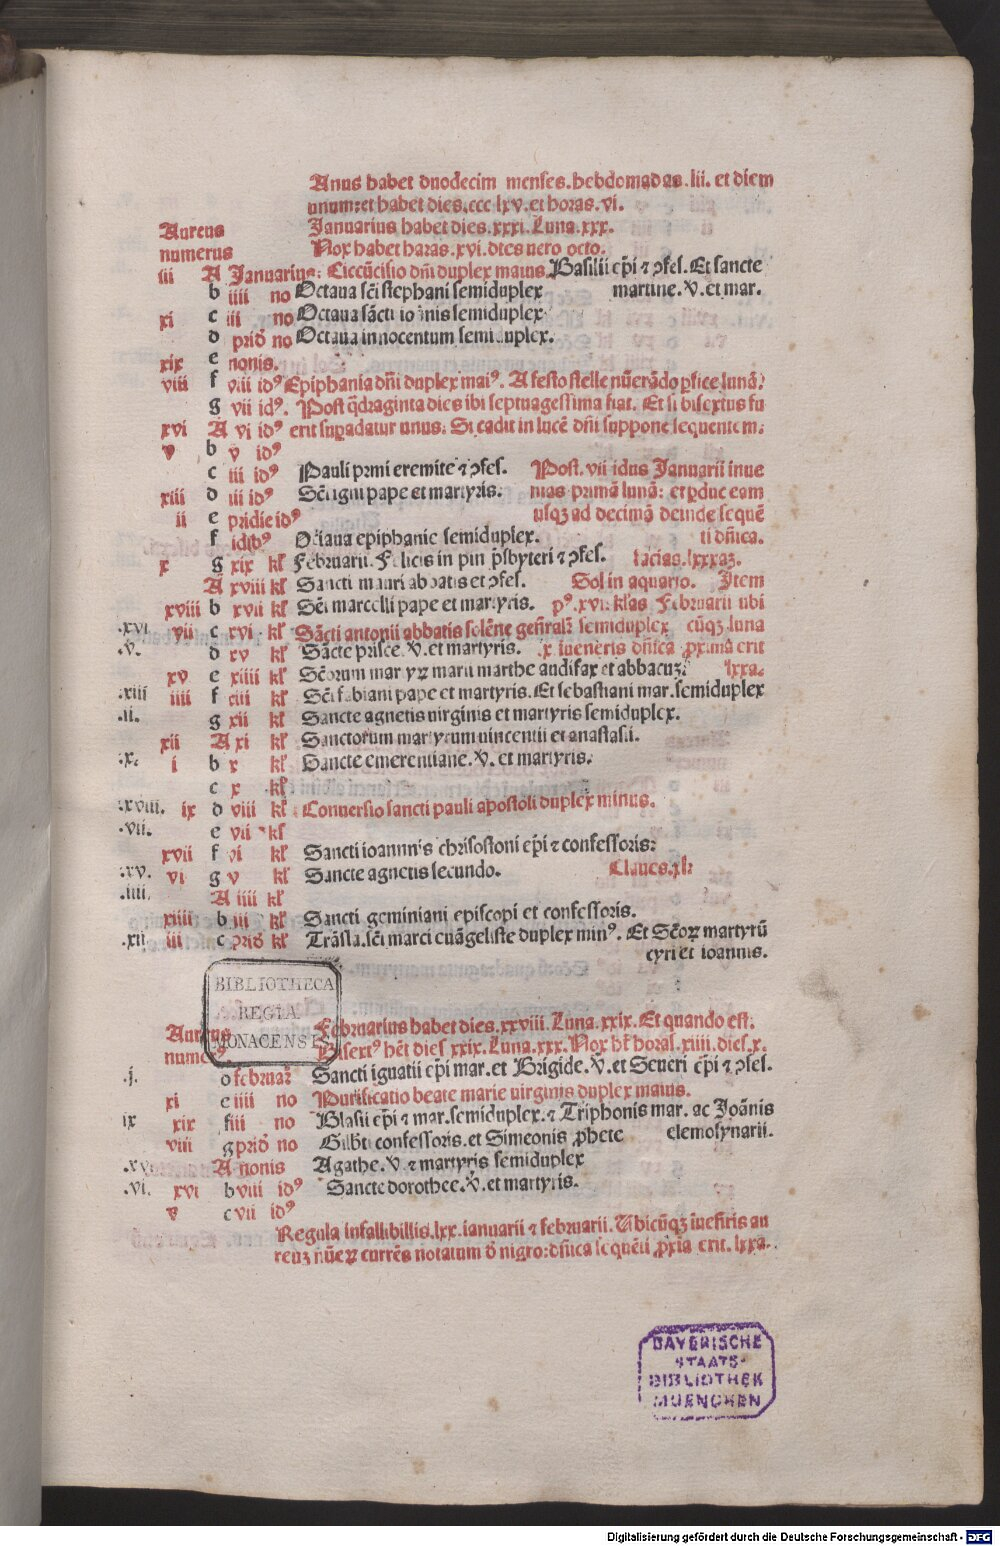 Anus habet duodecim menses.hebdomadas.lii. et diem
unum:et habet dies.ccc lxv.et horas.vi.
Aureus Januarius habet dies.xxxi.Luna.xxx.
numerus Nox habet haras.xvi.dies uero octo.
iii A Januarius: Circũcisio dñi duplex maius. Basilii ep̃i ⁊ ɔfes. Et sancte
b iiii no Octaua sc̃i stephani semiduplex martine.V.et mar.
xi c iii no Octaua sãcti ioãnis semiduplex
d prid̃ no Octaua innocentum semiduplex.
xix e nonis.
viii f viii idꝰ Epiphania dñi duplex maiꝰ. A festo stelle nũerãdo pfice lunã:
g vii idꝰ. Post q̃draginta dies ibi septuagessima fiat. Et si bisextus fu
xvi A vi idꝰ erit supadatur unus: Si cadit in lucẽ dñi suppone sequentem.
v b v idꝰ
c iiii idꝰ Pauli prmi eremite ⁊ ɔfes. Post. vii idus Januarii inue
xiii d iii idꝰ Sc̃i igini pape et martyris. nias primã lunã: et pduc eam
ii e pridie idꝰ usqꝫ ad decimã deinde sequẽ
f idibꝰ Octaua epiphanie semiduplex. ti dñica.
x g xix kl̃ Februarii. Felicis in pin p̃sbyteri ⁊ ɔfes. facias.lxxxaꝫ.
A xviii kl̃ Sancti mauri abbatis et ɔfes. Sol in aquario. Item
xviii b xvii kl̃ Sc̃i marcelli pape et martyris. pꝰ.xvi. kl̃as Februarii ubi
.xvi. vii c xvi kl̃ Sãcti antonii abbatis solẽne gen̄ral̃ semiduplex cũqꝫ luna
.v. d xv kl̃ Sãcte prisce.V.et martyris. x iueneris dñica proxima erit
xv e xiiii kl̃ Sc̃orum martyꝝ marii marthe audifax et abbacuꝫ: lxxa.
.xiii iiii f xiii kl̃ Sc̃i fabiani pape et martyris. Et sebastiani mar.semiduplex
.ii. g xii kl̃ Sancte agnetis uirginis et martyris semiduplex.
xii A xi kl̃ Sanctorum martyrum uincentii et anastasii.
.x. i b x kl̃ Sancte emerentiane.V.et martyris.
c x kl̃
.xviii. ix d viii kl̃ Conuersio sancti pauli apostoli duplex minus.
.vii. e vii kl̃
xvii f vi kl̃ Sancti ioannis chrisostoni ep̃i et confessoris:
.xv. vi g v kl̃ Sancte agnetis secundo. Claues.xl:
.iiii. A iiii kl̃
xiiii b iii kl̃ Sancti geminiani episcopi et confessoris.
.xii iii c prid̃ kl̃ Trãsla.sc̃i marci euãgeliste duplex minꝰ. Et Sc̃oꝝ martyrũ
cyri et ioannis.
BIBLIOTHECA
REGIA
MONACENSIS
Aureus Februarius habet dies.xxviii.Luna.xxix.Et quando est.
numeꝰ Bisextꝰ hẽt dies xxix.Luna.xxx.Nox hẽt horas.xiiii.dies.x.
.j. d februar̃ Sancti ignatii ep̃i mar.et Brigide.V.et Seueri ep̃i ⁊ ɔfes.
xi e iiii no Purificatio beate marie uirginis duplex maius.
ix xix f iii no Blasii ep̃i ⁊ mar.semiduplex.⁊ Triphonis mar. ac Joãnis
viii g prid̃ no Gilbti confessoris.et Simeonis ꝓhete elemosynarii.
A nonis Agathe.V.⁊ martyris semiduplex
.vi. xvi b viii idꝰ Sancte dorothee.V.et martyris.
v c vii idꝰ
Regula infallibillis.lxx.ianuarii ⁊ februarii. Ubicũqꝫ iuefiris au
reuꝫ nũeꝝ currẽs notatum d̃ nigro:dñica sequẽti ꝓxĩa erit.lxxa.
BAYERISCHE
STAATS-
BIBLIOTHEK
MUENCHEN
Digitalisierung gefördert durch die Deutsche Forschungsgemeinschaft - DFG